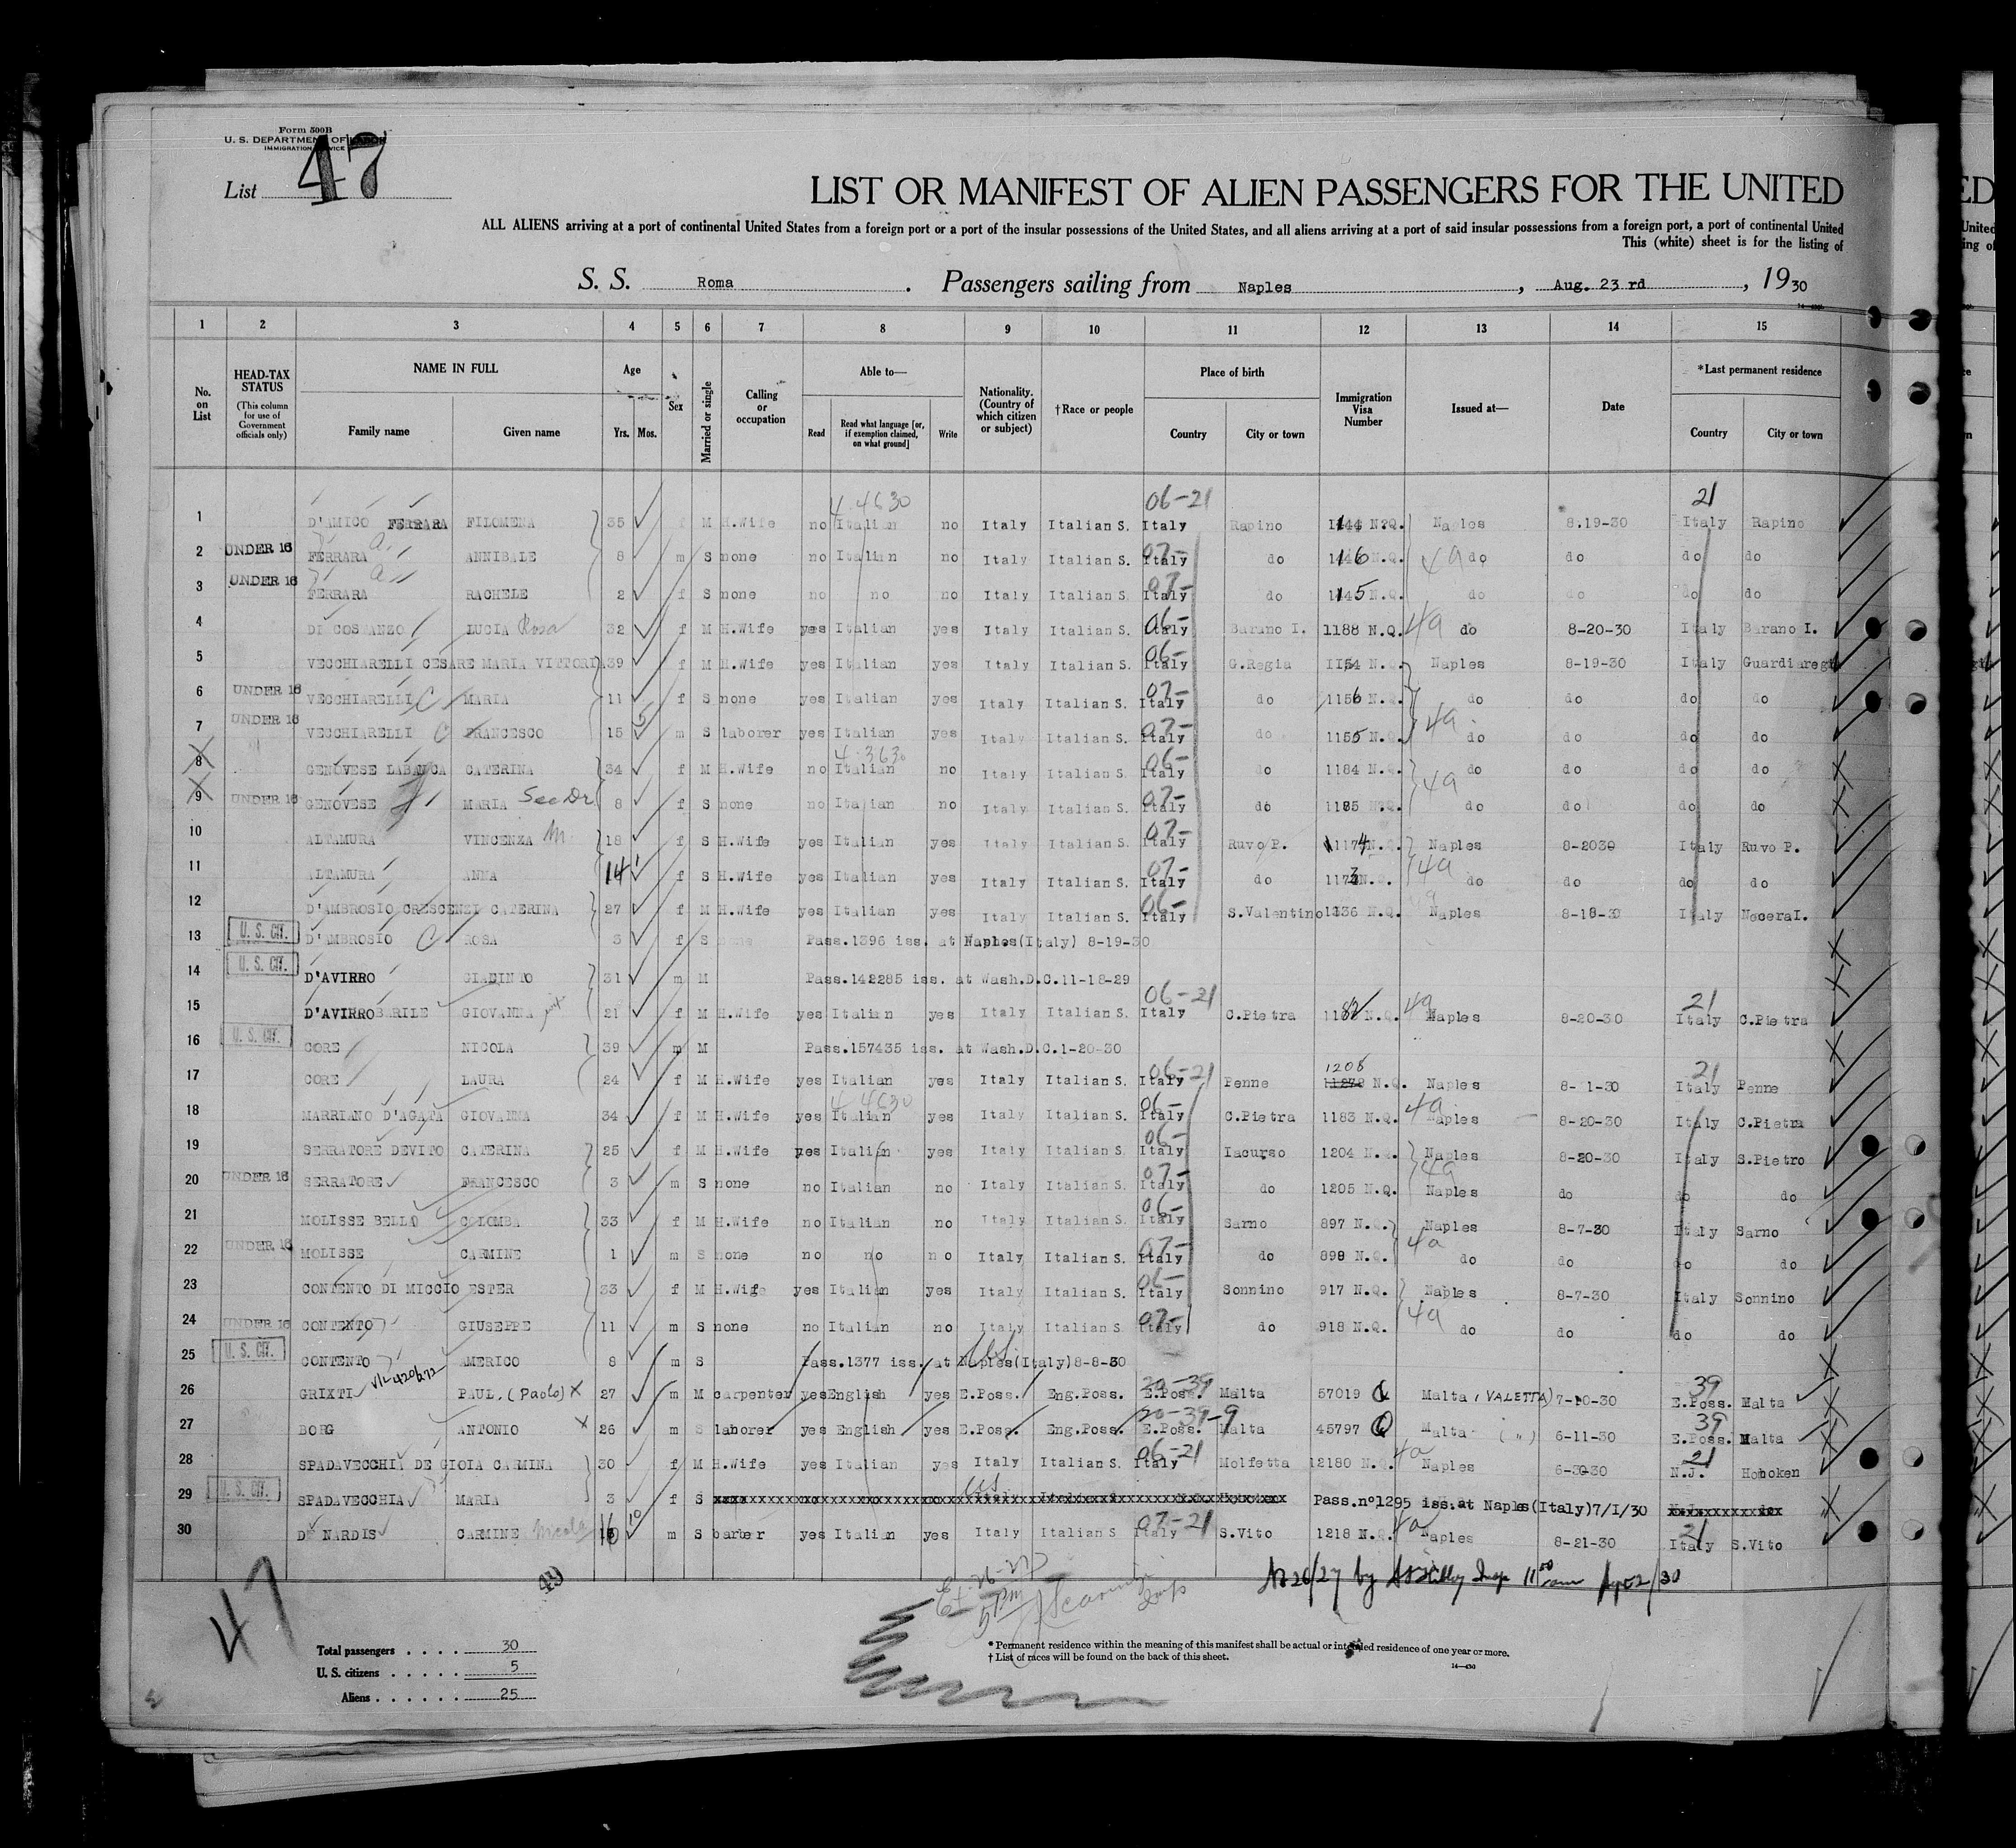 Form 500B
U. S. DEPARTMENT OF LABOR
IMMIGRATION SERVICE
List 47
LIST OR MANIFEST OF ALIEN PASSENGERS FOR THE UNITED
ALL ALIENS arriving at a port of continental United States from a foreign port or a port of the insular possessions of the United States, and all aliens arriving at a port of said insular possessions from a foreign port, a port of continental United
This (white) sheet is for the listing of
S. S. Roma. Passengers sailing from Naples, Aug. 23 rd, 1930
1 2 3 4 5 6 7 8 9 10 11 12 13 14 15
No. on List
HEAD-TAX STATUS (This column for use of Government officials only)
NAME IN FULL Family name Given name
Age Yrs. Mos.
Sex
Married or single
Calling or occupation
Able to— Read Read what language [or, if exemption claimed, on what ground] Write
Nationality. (Country of which citizen or subject)
†Race or people
Place of birth Country City or town
Immigration Visa Number
Issued at—
Date
*Last permanent residence Country City or town
4 4630 06-21 21
1 D'AMICO FERRARA FILOMENA 35 f M H.Wife no Italian no Italy Italian S. Italy Rapino 1144 N.Q. Naples 8.19-30 Italy Rapino
2 UNDER 16 FERRARA ANNIBALE 8 m S none no Italian no Italy Italian S. 07- Italy do 16 N.Q. 4a do do do do
3 UNDER 16 FERRARA RACHELE 2 f S none no no no Italy Italian S. 07- Italy do 1145 N.Q. do do do do
4 DI COSTANZO LUCIA Rosa 32 f M H.Wife yes Italian yes Italy Italian S. 06- Italy Barano I. 1188 N.Q. 4a do 8-20-30 Italy Barano I.
5 VECCHIARELLI CESARE MARIA VITTORIA 39 f M H.Wife yes Italian yes Italy Italian S. 06- Italy G.Regia 1154 N.Q. Naples 8-19-30 Italy Guardiaregi
6 UNDER 16 VECCHIARELLI C MARIA 11 f S none yes Italian yes Italy Italian S. 07- Italy do 1156 N.Q. do do do do
7 UNDER 16 VECCHIARELLI C FRANCESCO 15 5 m S laborer yes Italian yes Italy Italian S. 07- Italy do 1155 N.Q. 4a do do do do
4-3630
8 GENOVESE LABANCA CATERINA 34 f M H.Wife no Italian no Italy Italian S. 06- Italy do 1184 N.Q. do do do do
9 UNDER 16 GENOVESE MARIA See Dr 8 f S none no Italian no Italy Italian S. 07- Italy do 1185 N.Q. 4a do do do do
10 ALTAMURA VINCENZA M 18 f S H.Wife yes Italian yes Italy Italian S. 07- Italy Ruvo P. 1174 N.Q. Naples 8-2030 Italy Ruvo P.
11 ALTAMURA ANNA 14 f S H.Wife yes Italian yes Italy Italian S. 07- Italy do 1173 N.Q. 4a do do do do
12 D'AMBROSIO CRESCENZI CATERINA 27 f M H.Wife yes Italian yes Italy Italian S. 06- Italy S.Valentino 1136 N.Q. Naples 8-18-30 Italy NoceraI.
13 U. S. CIT. D'AMBROSIO C ROSA 3 f S none Pass.1396 iss. at Naples(Italy) 8-19-30
14 U. S. CIT. D'AVIRRO GIACINTO 31 m M Pass.142285 iss. at Wash.D.C.11-18-29
06-21 21
15 D'AVIRRO BARILE GIOVANNA 21 f M H.Wife yes Italian yes Italy Italian S. Italy C.Pietra 1182 N.Q. 4a Naples 8-20-30 Italy C.Pietra
16 U. S. CIT. CORE NICOLA 39 m M Pass.157435 iss. at Wash.D.C.1-20-30
17 CORE LAURA 24 f M H.Wife yes Italian yes Italy Italian S. 06-21 Italy Penne 1206 N.Q. Naples 8- 1-30 21 Italy Penne
4 4630
18 MARRIANO D'AGATA GIOVANNA 34 f M H.Wife yes Italian yes Italy Italian S. 06- Italy C.Pietra 1183 N.Q. 4a Naples 8-20-30 Italy C.Pietra
19 SERRATORE DEVITO CATERINA 25 f M H.Wife yes Italian yes Italy Italian S. 06- Italy Iacurso 1204 N.Q. Naples 8-20-30 Italy S.Pietro
20 UNDER 16 SERRATORE FRANCESCO 3 m S none no Italian no Italy Italian S. 07- Italy do 1205 N.Q. 4a Naples do do do
21 MOLISSE BELLO COLOMBA 33 f M H.Wife no Italian no Italy Italian S. 06- Italy Sarno 897 N.Q. Naples 8-7-30 Italy Sarno
22 UNDER 16 MOLISSE CARMINE 1 m S none no no no Italy Italian S. 07- Italy do 898 N.Q. 4a do do do do
23 CONTENTO DI MICCIO ESTER 33 f M H.Wife yes Italian yes Italy Italian S. 06- Italy Sonnino 917 N.Q. Naples 8-7-30 Italy Sonnino
24 UNDER 16 CONTENTO GIUSEPPE 11 m S none no Italian no Italy Italian S 07- Italy do 918 N.Q. 4a do do do do
25 U. S. CIT. CONTENTO AMERICO 8 m S Pass.1377 iss. at Naples(Italy)8-8-30 US
26 GRIXTI PAUL. (Paolo) X 27 m M carpenter yes English yes E.Poss. Eng.Poss. 20-39 E.Poss. Malta 57019 Malta (VALETTA) 7-10-30 39 E.Poss. Malta
27 BORG ANTONIO X 26 m S laborer yes English yes E.Poss. Eng.Poss. 20-39-9 E.Poss. Malta 45797 Malta ( " ) 6-11-30 39 E.Poss. Malta
28 SPADAVECCHIA DE GIOIA CARMINA 30 f M H.Wife yes Italian yes Italy Italian S. 06-21 Italy Molfetta 12180 N.Q. 4a Naples 6-30-30 21 N.J. Hoboken
29 U. S. CIT. SPADAVECCHIA MARIA 3 f S US Pass.nº1295 iss.at Naples(Italy)7/1/30
30 DE NARDIS CARMINE Nicola 16 10 m S barber yes Italian yes Italy Italian S 07-21 Italy S.Vito 1218 N.Q. 4a Naples 8-21-30 21 Italy S.Vito
47 49
Total passengers . . . . 30
U. S. citizens . . . . . 5
Aliens . . . . . . 25
* Permanent residence within the meaning of this manifest shall be actual or intended residence of one year or more.
† List of races will be found on the back of this sheet.